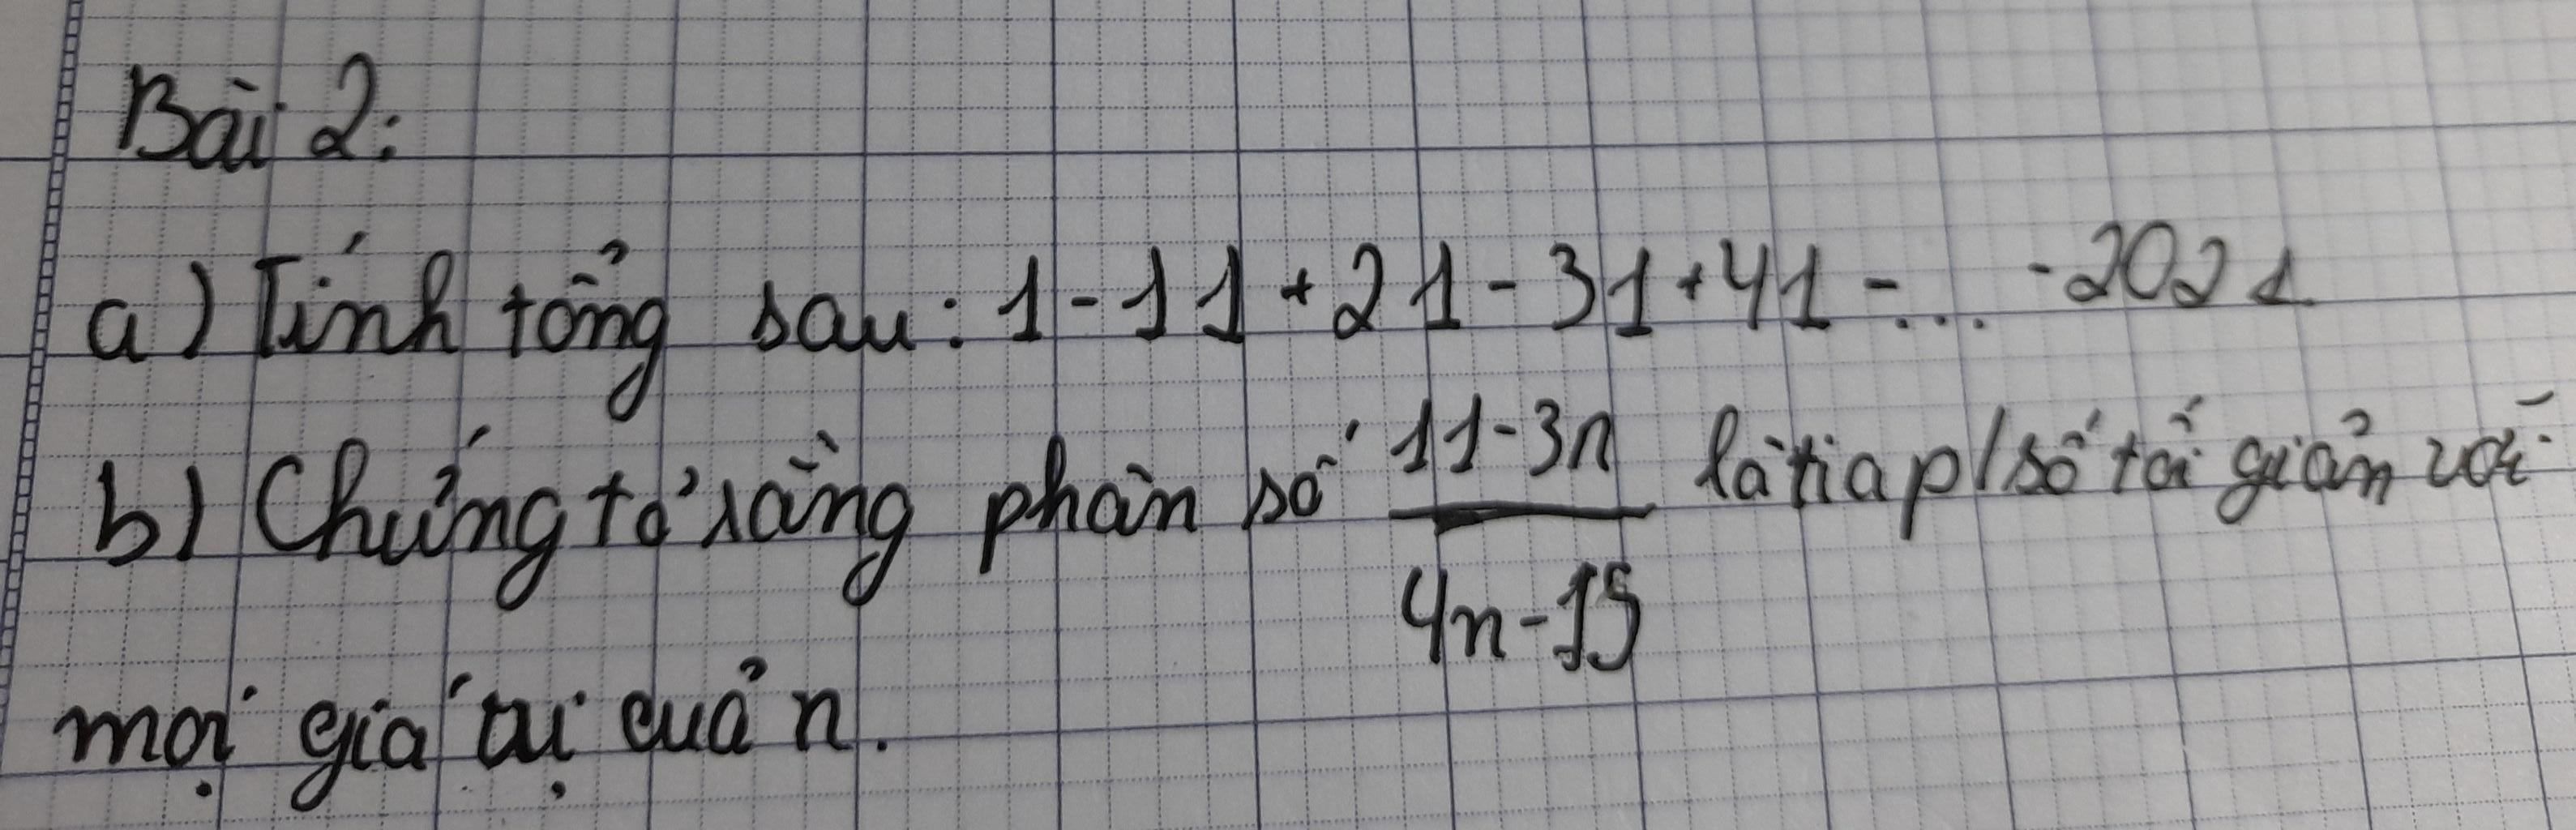 Bài 2:
a) Tính tổng sau: 1 - 11 + 21 - 31 + 41 - ... - 2021
b) Chứng tỏ rằng phân số 11-3n / 4n-15 là p/số tối giản với
mọi giá trị của n.